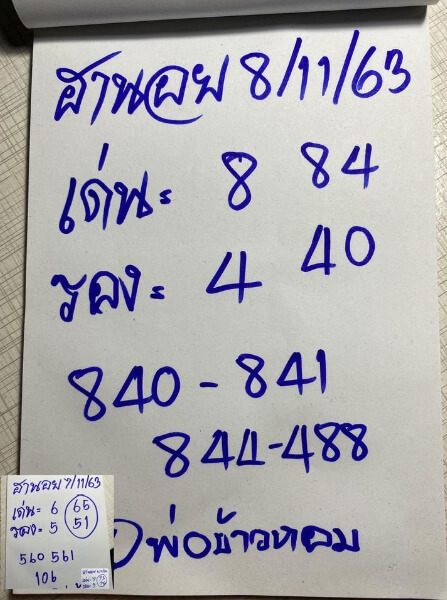 ฮานอย 8/11/63
เด่น= 8 84
รอง= 4 40
840-841
844-488
พ่อข้าวหอม
ฮานอย 7/11/63
เด่น= 6 65
รอง= 5 51
560 561
106